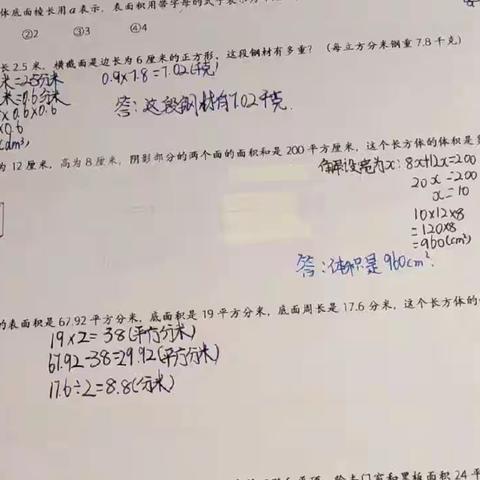 体底面棱长用a表示,表面积用含字母的式子表示
②2 ③3 ④4
长2.5米,横截面是边长为6厘米的正方形,这段钢材有多重?(每立方分米钢重7.8千克)
米=25分米 0.9×7.8=7.02(千克)
米=0.6分米
×0.6×0.6
×0.6
(dm³)
答:这段钢材有7.02千克.
为12厘米,高为8厘米,阴影部分的两个面的面积和是200平方厘米,这个长方体的体积是
解:设宽为x:8x+12x=200
20x=200
x=10
10×12×8
=120×8
=960(cm³)
答:体积是960cm³.
的表面积是67.92平方分米,底面积是19平方分米,底面周长是17.6分米,这个长方体的
19×2=38(平方分米)
67.92-38=29.92(平方分米)
17.6÷2=8.8(分米)
除去门窗和黑板面积24平